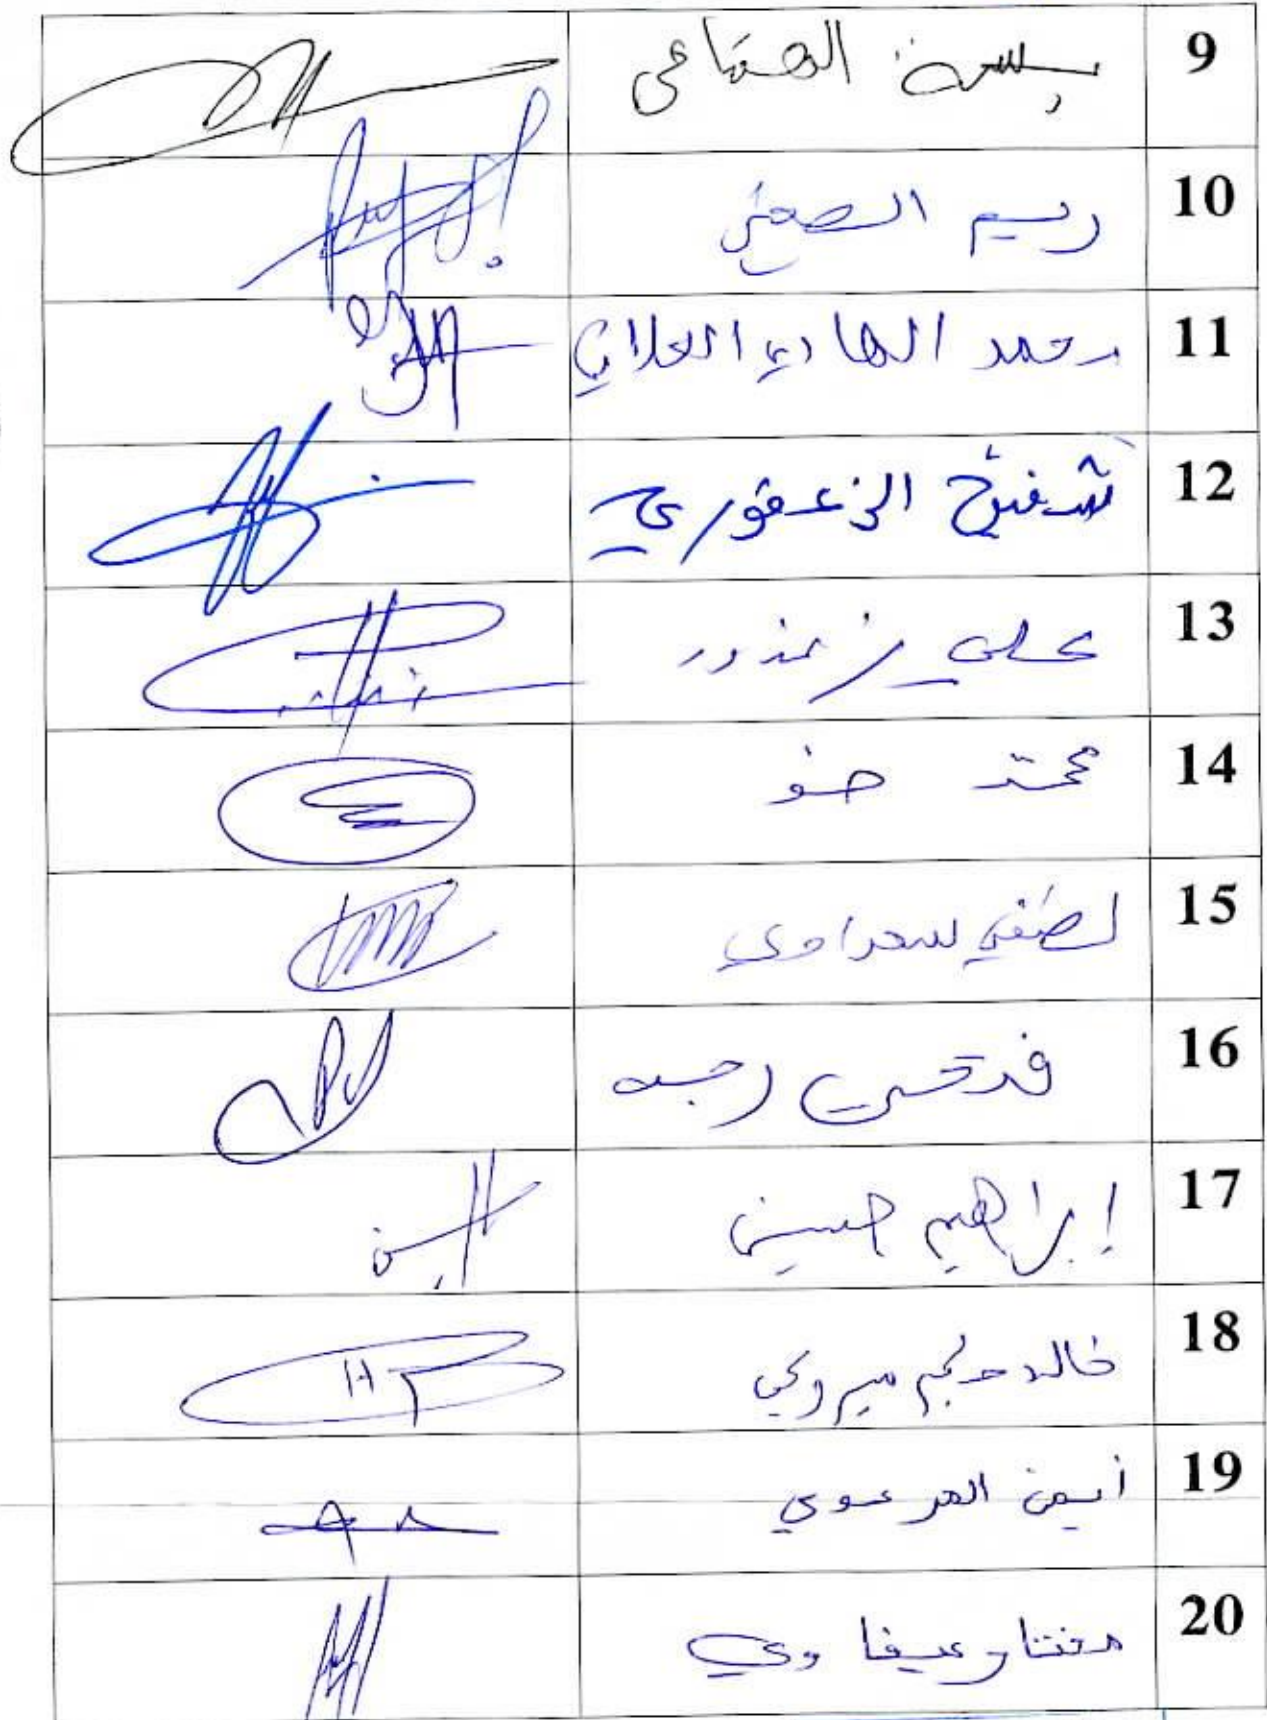 9 بسمة الهمامي
10 ريم الصغير
11 محمد الهادي العلاني
12 شفيق الزعفوري
13 علي زغدود
14 محمد ضو
15 لطفي السعداوي
16 فتحي رجب
17 إبراهيم حسين
18 خالد حكيم مبروكي
19 أيمن المرعوي
20 مختار عيفاوي